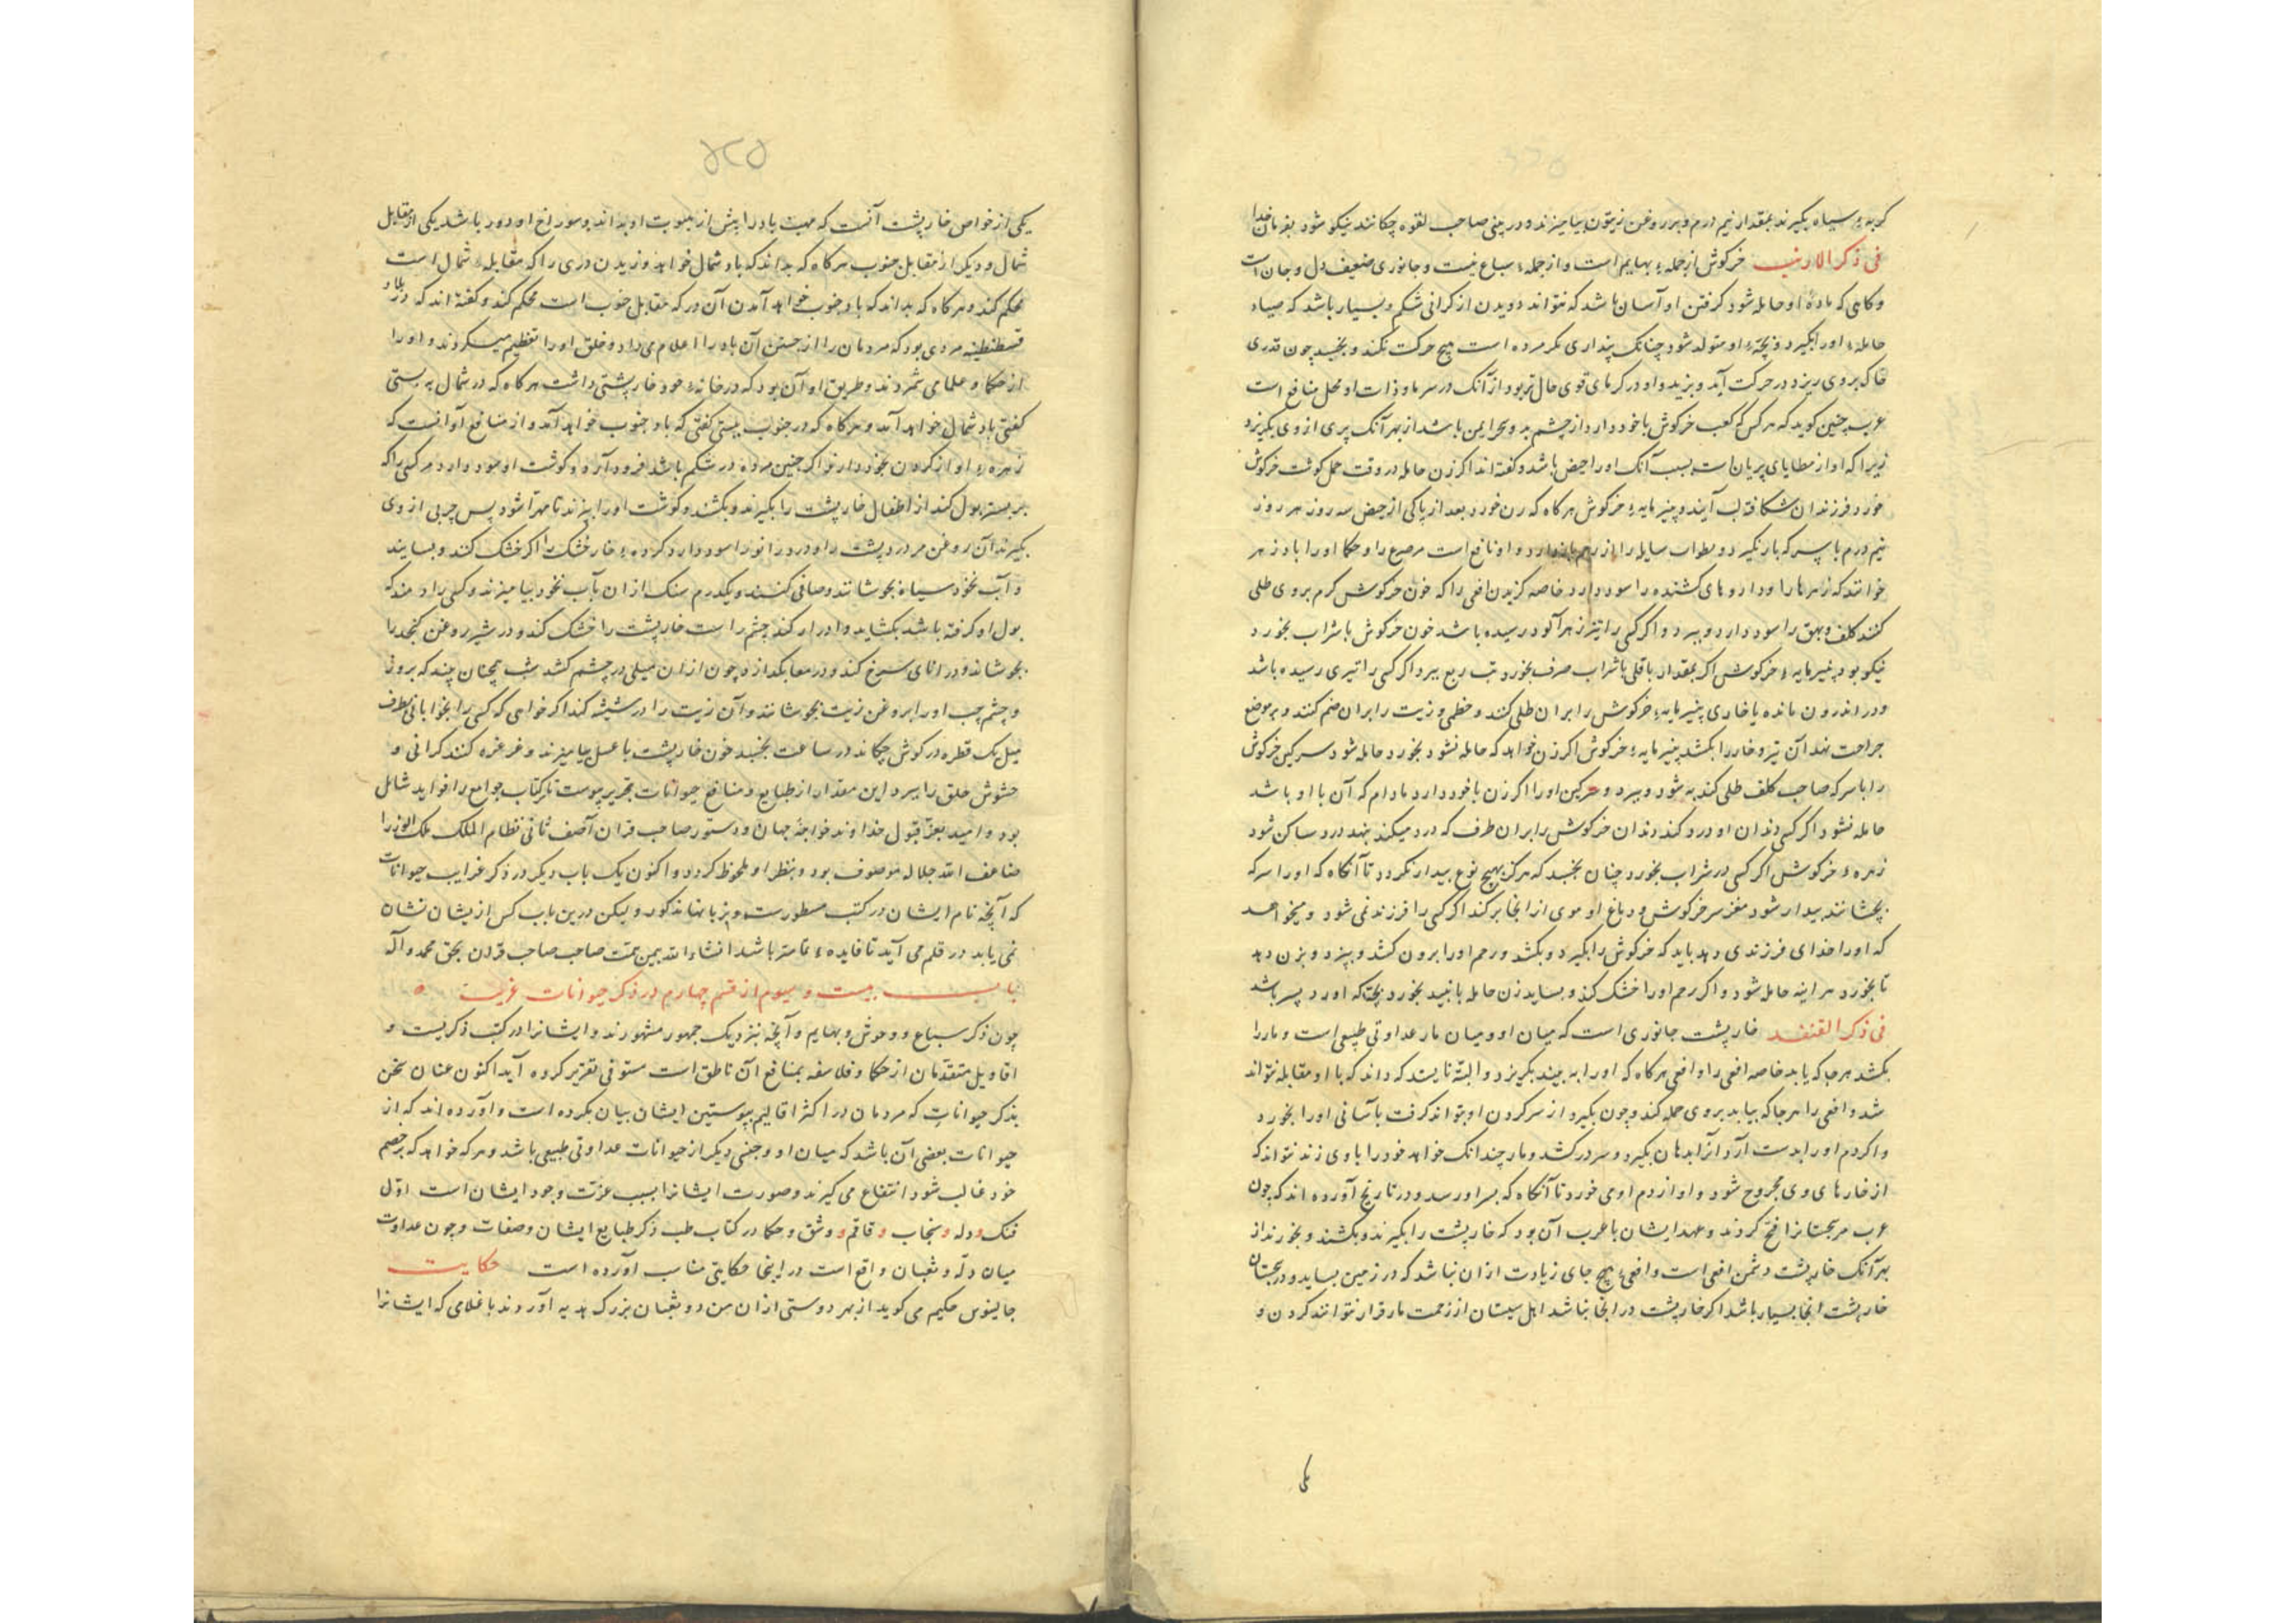 کربهٔ سیاه بکیرند بمقدار نیم درم و بر روغن زیتون بیامیزند و در بینی صاحب لقوه چکانند نیکو شود بفرمان خدا
فی ذکر الارنب خرکوش از جملهٔ بهایم است و از جملهٔ سباع نیست و جانوری ضعیف دل و جان است
وکاهی که مادهٔ او حامله شود کرفتن او آسان باشد که نتواند دویدن از کرانی شکم و بسیار باشد که صیاد
حاملهٔ او را بکیرد و بچهٔ او متولد شود چنانک پنداری مکر مرده است هیچ حرکت نکند و بخسبد چون قدری
خاک بر وی ریزد در حرکت آید و بزید و او در کرمای قوی حال تر بود از آنک در سرما و ذات او محل منافع است
عرب چنین کوید که هر کس که کعب خرکوش با خود دارد از چشم بد و سحر ایمن باشد از بهر آنک پری از وی بکریزد
زیرا که او از مطایای پریان است بسبب آنک او را حیض باشد و کفته اند اکر زن حامله در وقت حمل کوشت خرکوش
خورد فرزندان شکافته لب آیند و پنیر مایهٔ خرکوش هر کاه که زن خورد بعد از پاکی از حیض سه روز هر روز
نیم درم با سرکه بار نکیرد و رطوبات سایله را از رحم باز دارد و او نافع است مصروع را و حکما او را پادزهر
خوانند که زهرها را و داروهای کشنده را سود دارد خاصه کزیدن افعی را که خون خرکوش کرم بر وی طلی
کنند کلف و بهق را سود دارد و ببرد و اکر کسی را تیر زهر آلود رسیده باشد خون خرکوش با شراب بخورد
نیکو بود پنیر مایهٔ خرکوش اکر بمقدار باقلی با شراب صرف بخورد تب ربع ببرد اکر کسی را تیری رسیده باشد
و در اندرون مانده یا خاری پنیر مایهٔ خرکوش را بران طلی کند و خطمی و زیت را بران ضم کنند و بر موضع
جراحت نهند آن تیر و خار را بکشد پنیر مایهٔ خرکوش اکر زن خواهد که حامله نشود بخورد حامله شود سرکین خرکوش
را با سرکه صاحب کلف طلی کند به شود و ببرد و سرکین او را اکر زن با خود دارد مادام که آن با او باشد
حامله نشود اکر کسی دندان او درد کند دندان خرکوش را بران طرف که درد میکند بنهد درد ساکن شود
زهرهٔ خرکوش اکر کسی در شراب بخورد چنان بخسبد که هرکز بهیچ نوع بیدار نکردد تا آنکاه که او را سرکه
بچشانند بیدار شود مغز سر خرکوش و دباغ او موی از انجا برکند اکر کسی را فرزند نمی شود و میخواهد
که او را خدای فرزندی دهد باید که خرکوش را بکیرد و بکشد و رحم او را برون کشد و بپزد و بزن دهد
تا بخورد هر اینه حامل شود و اکر رحم او را خشک کند و بساید زن حامله با نبید بخورد بچهٔ که اورد پسر باشد
فی ذکر القنفد خارپشت جانوری است که میان او و میان مار عداوتی طبیعی است و مار را
بکشد هر جا که یابد خاصه افعی را و افعی هر کاه که او را به بیند بکریزد و البته نایستد که داند که با او مقابله نتواند
شد و افعی را هر جا که بیابد بر وی حمله کند و چون بکیرد از سر کردن او بتواند کرفت باسانی او را بخورد
و اکر دم او را بدست آرد آنرا بدهان بکیرد و سر در کشد و مار چندانک خواهد خود را با وی زند نتواند که
از خارهای وی مجروح شود و او از دم او می خورد تا آنکاه که بسر او رسد و در تاریخ آورده اند که چون
عرب مر سجستانرا فتح کردند و عهد ایشان با عرب آن بود که خارپشت را بکیرند و بکشند و بخورند از
بهر آنک خارپشت دشمن افعی است و افعیٔ هیچ جای زیادت از ان نباشد که در زمین بساید و در سجستان
خارپشت انجا بسیار باشد اکر خارپشت در انجا نباشد اهل سیستان از زحمت مار قرار نتوانند کردن و
یکی از خواص خارپشت آنست که مهبت باد را پیش از هبوب او بداند و سوراخ او دو در باشد یکی از مقابل
شمال و دیکر از مقابل جنوب هر کاه که بداند که باد شمال خواهد وزیدن دری را که مقابلهٔ شمال است
محکم کند و هر کاه که بداند که باد جنوب خواهد آمدن آن در که مقابل جنوب است محکم کند و کفته اند که در بلاد
قسطنطنیه مردی بود که مردمان را از جستن آن باد را اعلام می داد و خلق او را تعظیم میکردند و او را
از حکما و علما می شمردند و طریق او آن بود که در خانهٔ خود خارپشتی داشت هر کاه که در شمال به بستی
کفتی باد شمال خواهد آمد و هر کاه که در جنوب ببستی کفتی که باد جنوب خواهد آمد و از منافع او آنست که
زهرهٔ او از کردن بخود دارند اکر جنین مرده در شکم باشد فرود آرد و کوشت او سود دارد هر کسی را که
بر بستر بول کند از اطفال خارپشت را بکیرند و بکشند و کوشت او را بپزند تا مهرا شود پس چربی از وی
بکیرند آن روغن مر درد پشت را و درد زانو را سود دارد کردهٔ خارپشت را اکر خشک کنند و بسایند
و آب نخود سیاه بجوشانند و صافی کنند و یکدرم سنک ازان بآب نخود بیامیزند و کسی را دهند که
بول او کرفته باشد بکشاید و ادرار کند چشم راست خارپشت را خشک کند و در شیر روغن کنجد را
بجوشاند و در انای سرخ کند و درمعا بکدازد چون ازان میلی در چشم کشد شب همچنان بیند که بروز
و چشم چپ او را بروغن زیت بجوشانند و آن زیت را در شیشه کند اکر خواهی که کسی را بخوابانی بطرف
میل یک قطره در کوش چکاند در ساعت بخسبد خون خارپشت با عسل بیامیزند و غرغره کنند کرانی او
خشوش حلق را ببرد این مقدار از طبایع و منافع حیوانات بتحریر پیوست تا مر کتاب جوامع را فواید شامل
بود و امید بعز قبول خداوند خواجهٔ جهان و دستور صاحب قران آصف ثانی نظام الملک ملک الوزرا
ضاعف الله جلاله موصوف بود و بنظر او ملحوظ کردد و اکنون یک باب دیکر در ذکر غرایب حیوانات
که آنچه نام ایشان در کتب مسطورست و بزبانها مذکور ولیکن درین باب کس از یشان نشان
نمی یابد در قلم می آید تا فایدهٔ تمامتر باشد انشاء الله بیمن همت صاحب صاحب قران بحق محمد و آله
باب بیست و سیوم از قسم چهارم در ذکر حیوانات غریب
چون ذکر سباع و وحوش و بهایم و آنچه بنزدیک جمهور مشهورند و ایشانرا در کتب ذکریست و
اقاویل متقدمان از حکما و فلاسفه بمنافع آن ناطق است مستوفی تقریر کرده آید اکنون عنان سخن
بذکر حیوانات که مردمان در اکثر اقالیم بپوستین ایشان بیان بکرده است و آورده اند که از
حیوانات بعضی آن باشد که میان او و جنس دیکر از حیوانات عداوتی طبیعی باشد و هر که خواهد که بر خصم
خود غالب شود انتفاع می کیرند و صورت ایشانرا بسبب عزت وجود ایشان است اول
فنک و دله و سنجاب و قاقم و وشق و حکما در کتاب طب ذکر طبایع ایشان و صفات و چون عداوت
میان دله و ثعبان واقع است در اینجا حکایتی مناسب آورده است حکایت
جالینوس حکیم می کوید از بهر دوستی ازان من دو ثعبان بزرک هدیه آوردند با غلامی که ایشانرا